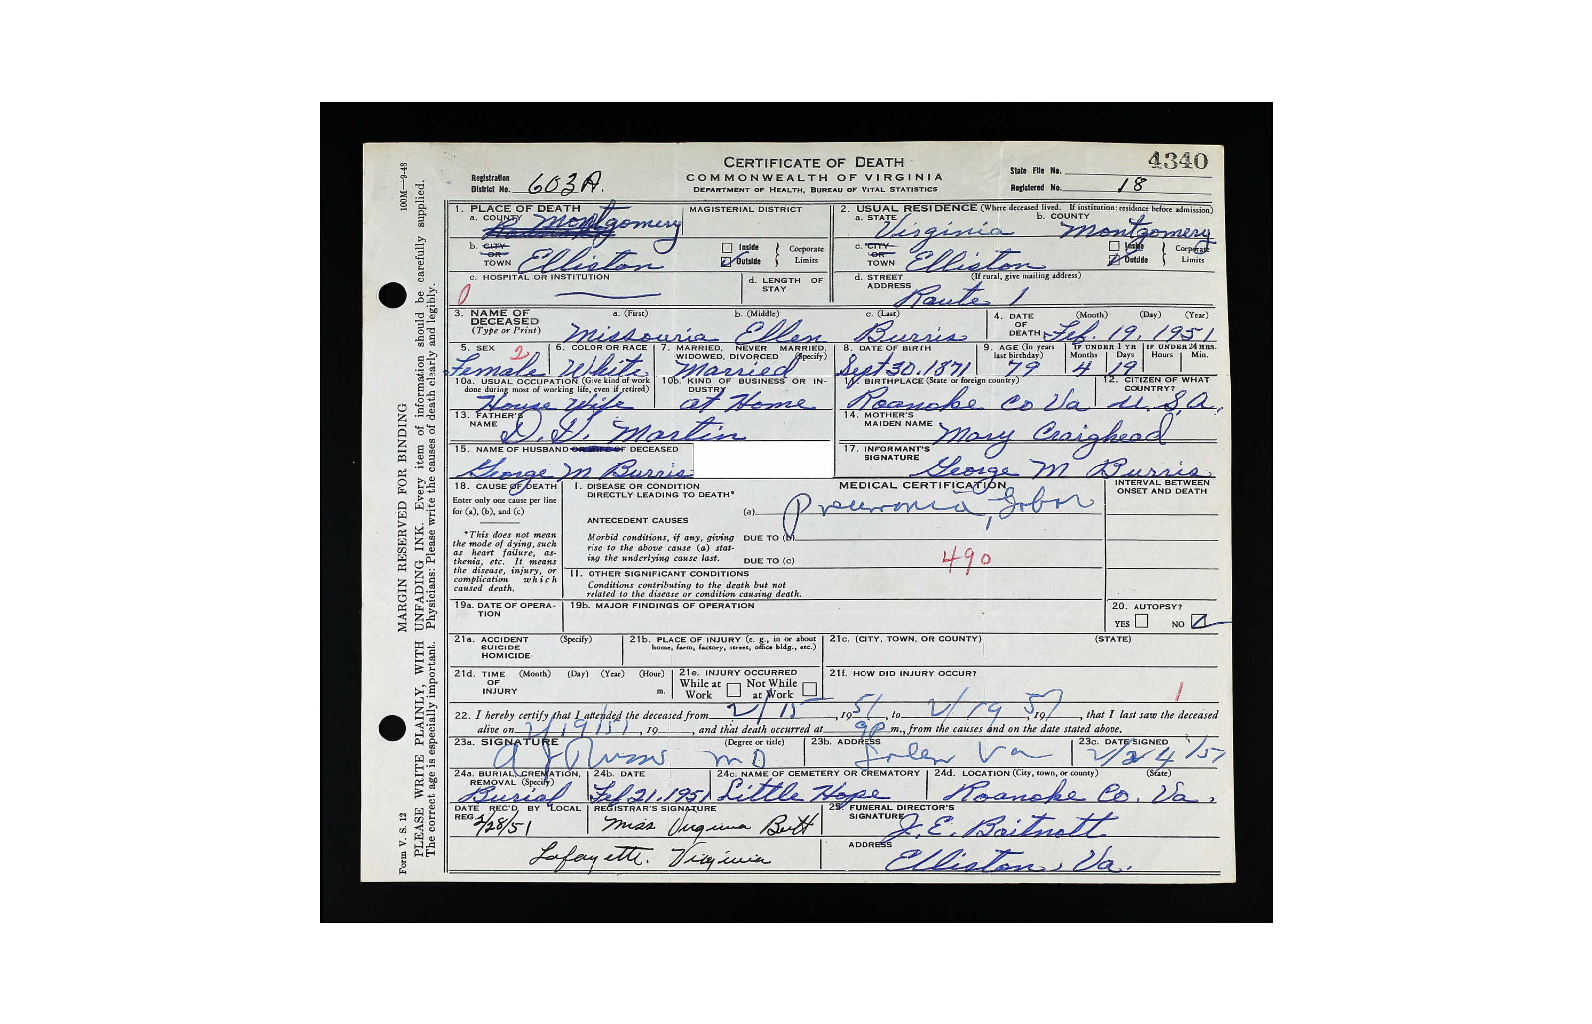 CERTIFICATE OF DEATH
COMMONWEALTH OF VIRGINIA
DEPARTMENT OF HEALTH, BUREAU OF VITAL STATISTICS
4340
Registration District No. 603A.
State File No.
Registered No. 18
100M—9-48
MARGIN RESERVED FOR BINDING
PLEASE WRITE PLAINLY, WITH UNFADING INK. Every item of information should be carefully supplied.
The correct age is especially important. Physicians: Please write the causes of death clearly and legibly.
Form V. S. 12
1. PLACE OF DEATH
a. COUNTY Montgomery
MAGISTERIAL DISTRICT
2. USUAL RESIDENCE (Where deceased lived. If institution: residence before admission)
a. STATE Virginia
b. COUNTY Montgomery
b. CITY OR TOWN Elliston
Inside Outside Corporate Limits
c. CITY OR TOWN Elliston
Inside Outside Corporate Limits
c. HOSPITAL OR INSTITUTION
d. LENGTH OF STAY
d. STREET ADDRESS (If rural, give mailing address)
Route 1
3. NAME OF DECEASED (Type or Print)
a. (First) Missouria
b. (Middle) Ellen
c. (Last) Burris
4. DATE OF DEATH (Month) (Day) (Year)
Feb. 19, 1951
5. SEX 2
Female
6. COLOR OR RACE
White
7. MARRIED, NEVER MARRIED, WIDOWED, DIVORCED (Specify)
Married
8. DATE OF BIRTH
Sept 30. 1871
9. AGE (In years last birthday)
79
IF UNDER 1 YR Months Days
4 19
IF UNDER 24 HRS. Hours Min.
10a. USUAL OCCUPATION (Give kind of work done during most of working life, even if retired)
House Wife
10b. KIND OF BUSINESS OR INDUSTRY
at Home
11. BIRTHPLACE (State or foreign country)
Roanoke Co Va
12. CITIZEN OF WHAT COUNTRY?
U.S.A.
13. FATHER'S NAME
Martin
14. MOTHER'S MAIDEN NAME
Mary Craighead
15. NAME OF HUSBAND OR WIFE OF DECEASED
George M Burris
17. INFORMANT'S SIGNATURE
George M Burris
18. CAUSE OF DEATH
Enter only one cause per line for (a), (b), and (c)
*This does not mean the mode of dying, such as heart failure, asthenia, etc. It means the disease, injury, or complication which caused death.
MEDICAL CERTIFICATION
INTERVAL BETWEEN ONSET AND DEATH
I. DISEASE OR CONDITION DIRECTLY LEADING TO DEATH*
(a) Pneumonia, lobar
ANTECEDENT CAUSES
Morbid conditions, if any, giving rise to the above cause (a) stating the underlying cause last.
DUE TO (b)
DUE TO (c)
490
II. OTHER SIGNIFICANT CONDITIONS
Conditions contributing to the death but not related to the disease or condition causing death.
19a. DATE OF OPERATION
19b. MAJOR FINDINGS OF OPERATION
20. AUTOPSY?
YES NO
21a. ACCIDENT SUICIDE HOMICIDE (Specify)
21b. PLACE OF INJURY (e. g., in or about home, farm, factory, street, office bldg., etc.)
21c. (CITY, TOWN, OR COUNTY) (STATE)
21d. TIME OF INJURY (Month) (Day) (Year) (Hour) m.
21e. INJURY OCCURRED
While at Work Not While at Work
21f. HOW DID INJURY OCCUR?
1
22. I hereby certify that I attended the deceased from 2/15, 1951, to 2/19, 1951, that I last saw the deceased
alive on 2/19/51, 19, and that death occurred at 9p m., from the causes and on the date stated above.
23a. SIGNATURE (Degree or title)
MD
23b. ADDRESS
Salem Va
23c. DATE SIGNED
2/24/51
24a. BURIAL, CREMATION, REMOVAL (Specify)
Burial
24b. DATE
Feb 21. 1951
24c. NAME OF CEMETERY OR CREMATORY
Little Hope
24d. LOCATION (City, town, or county) (State)
Roanoke Co. Va.
DATE REC'D BY LOCAL REG.
2/28/51
REGISTRAR'S SIGNATURE
Miss Virginia Butt
Lafayette. Virginia
25. FUNERAL DIRECTOR'S SIGNATURE
J. E. Boitnott
ADDRESS
Elliston, Va.